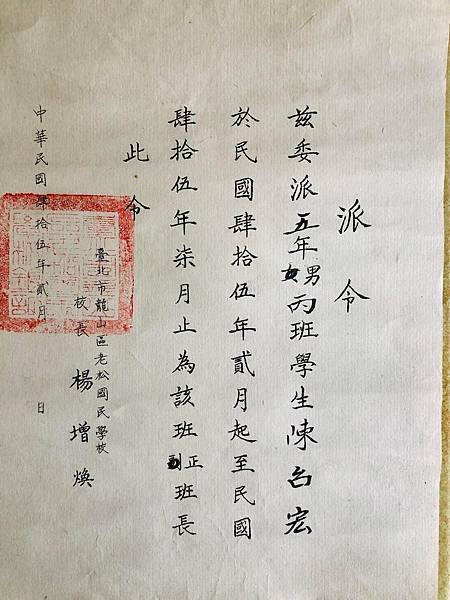 派令
茲委派五年男女丙班學生陳台宏
於民國肆拾伍年貳月起至民國
肆拾伍年柒月止為該班正副班長
此令
臺北市龍山區老松國民學校
校長 楊增煥
中華民國肆拾伍年貳月 日